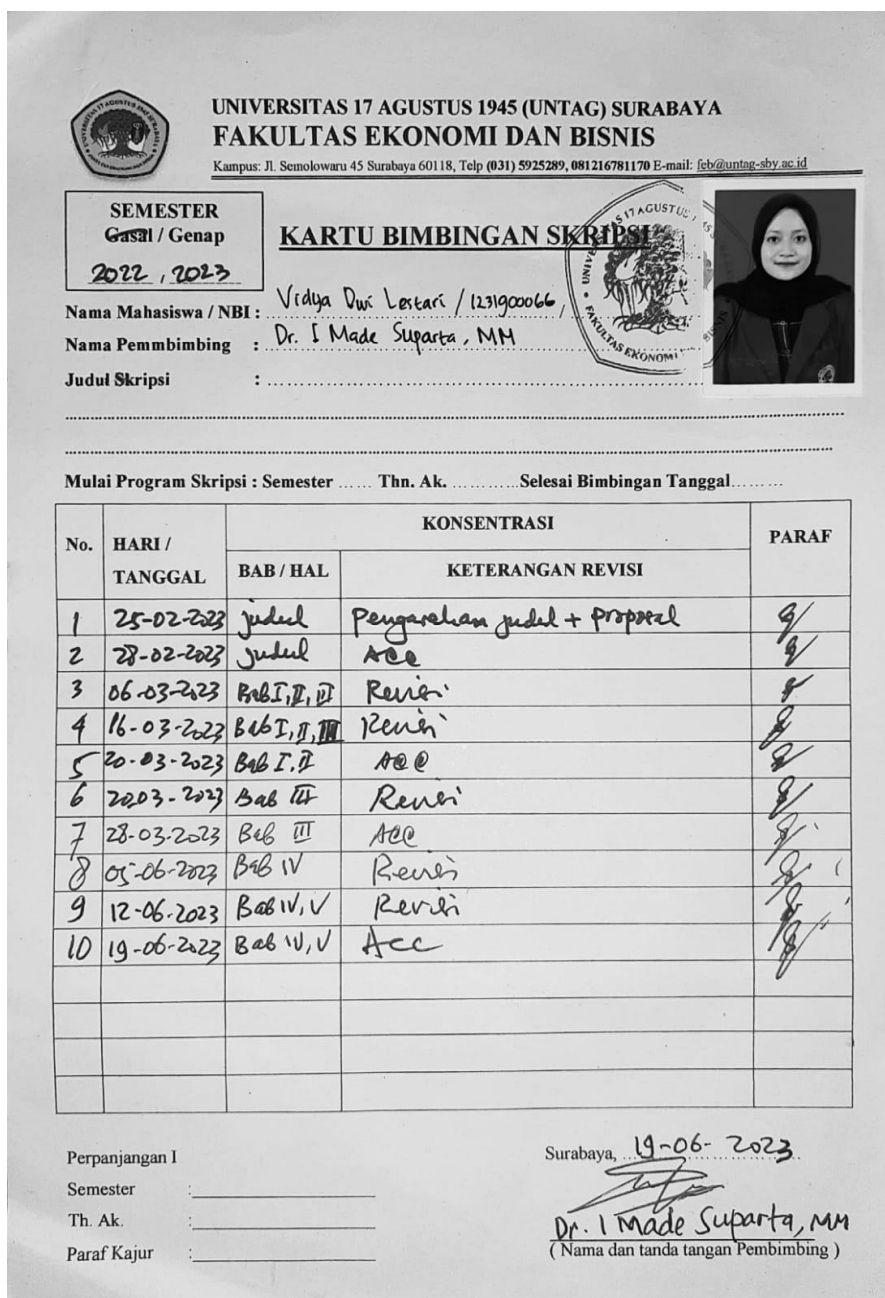 UNIVERSITAS 17 AGUSTUS 1945 (UNTAG) SURABAYA
FAKULTAS EKONOMI DAN BISNIS
Kampus: Jl. Semolowaru 45 Surabaya 60118, Telp (031) 5925289, 081216781170 E-mail: feb@untag-sby.ac.id
SEMESTER
Gasal / Genap
2022 , 2023
KARTU BIMBINGAN SKRIPSI
Nama Mahasiswa / NBI : Vidya Dwi Lestari / 1231900066 /
Nama Pemmbimbing : Dr. I Made Suparta, MM
Judul Skripsi :
Mulai Program Skripsi : Semester ...... Thn. Ak. ............Selesai Bimbingan Tanggal........
No. HARI / TANGGAL KONSENTRASI PARAF
BAB / HAL KETERANGAN REVISI
1 25-02-2023 judul Pengarahan judul + proposal
2 28-02-2023 judul ACC
3 06-03-2023 Bab I, II, III Revisi
4 16-03-2023 Bab I, II, III Revisi
5 20-03-2023 Bab I, II ACC
6 20.03-2023 Bab III Revisi
7 28-03-2023 Bab III ACC
8 05-06-2023 Bab IV Revisi
9 12-06-2023 Bab IV, V Revisi
10 19-06-2023 Bab IV, V Acc
Perpanjangan I
Semester :
Th. Ak. :
Paraf Kajur :
Surabaya, 19-06-2023
Dr. I Made Suparta, MM
( Nama dan tanda tangan Pembimbing )